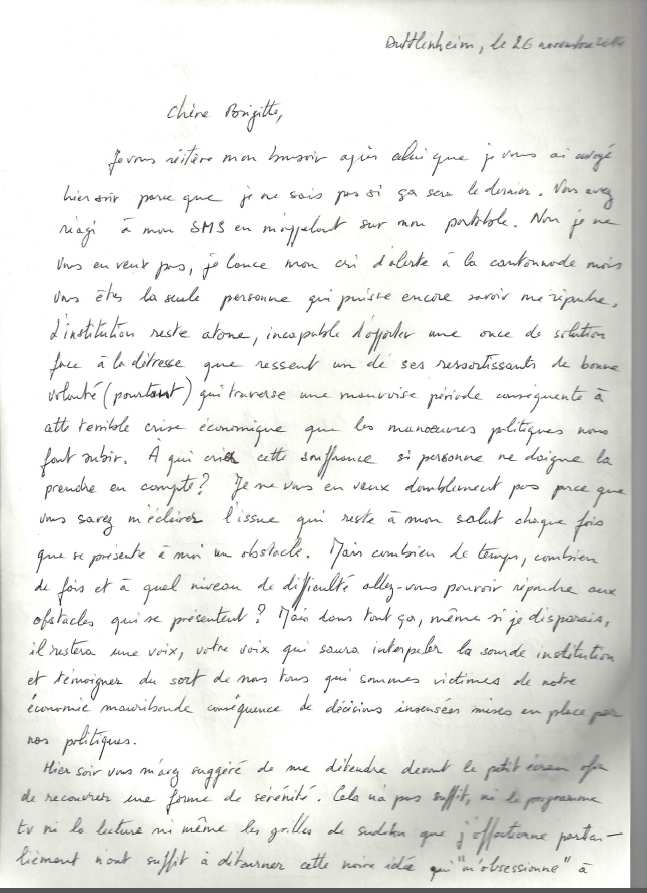 Duttlenheim, le 26 novembre
Chère Brigitte,
Je vous réitère mon bonsoir après celui que je vous ai envoyé
hier soir parce que je ne sais pas si ça sera le dernier. Vous avez
réagi à mon SMS en m'appelant sur mon portable. Non je ne
vous en veux pas, je lance mon cri d'alerte à la cantonnade mais
vous êtes la seule personne qui puisse encore savoir me répondre,
L'institution reste atone, incapable d'apporter une once de solution
face à la détresse que ressent un de ses ressortissants de bonne
volonté (pourtant) qui traverse une mauvaise période conséquente à
cette terrible crise économique que les manœuvres politiques nous
font subir. À qui crier cette souffrance si personne ne daigne la
prendre en compte? Je ne vous en veux doublement pas parce que
vous savez m'éclairer l'issue qui reste à mon salut chaque fois
que se présente à moi un obstacle. Mais combien de temps, combien
de fois et à quel niveau de difficulté allez-vous pouvoir répondre aux
obstacles qui se présentent? Mais dans tout ça, même si je disparais,
il restera une voix, votre voix qui saura interpeler la sourde institution
et témoigner du sort de nous tous qui sommes victimes de notre
économie mauribonde conséquence de décisions insensées mises en place par
nos politiques.
Hier soir vous m'avez suggéré de me détendre devant le petit écran afin
de recouvrer une forme de sérénité. Cela n'a pas suffit, ni le programme
tv ni la lecture ni même les grilles de sudoku que j'affectionne particu-
lièrement n'ont suffit à détourner cette noire idée qui "m'obsessionne" à